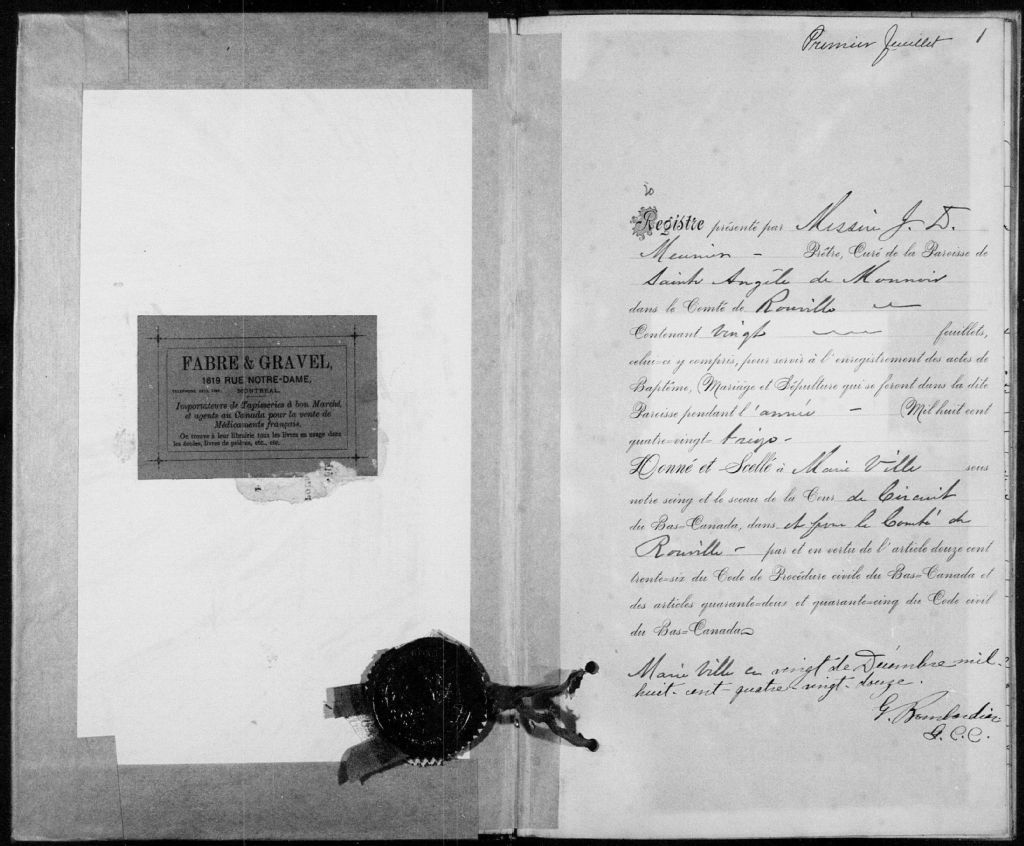 FABRE & GRAVEL,
1619 RUE NOTRE-DAME,
MONTREAL.
Importateurs de Tapisseries à bon Marché,
et agents au Canada pour la vente de
Médicaments français.
On trouve à leur librairie tous les livres en usage dans
les écoles, livres de prières, etc., etc.
Premier feuillet 1
20
Registre présenté par Messire J. D.
Meunier - Prêtre, Curé de la Paroisse de
Sainte Angèle de Monnoir
dans le Comté de Rouville
Contenant vingt feuillets,
celui-ci y compris, pour servir à l'enregistrement des actes de
Baptême, Mariage et Sépulture qui se feront dans la dite
Paroisse pendant l'année - Mil huit cent
quatre-vingt-treize-
Donné et Scellé à Marie Ville sous
notre seing et le sceau de la Cour de Circuit
du Bas=Canada, dans et pour le Comté de
Rouville - par et en vertu de l'article douze cent
trente=six du Code de Procédure civile du Bas=Canada et
des articles quarante=deux et quarante=cinq du Code civil
du Bas=Canada
Marie Ville ce vingt de Décembre mil-
huit-cent-quatre-vingt-douze.
G. Bombardier
G.C.C.